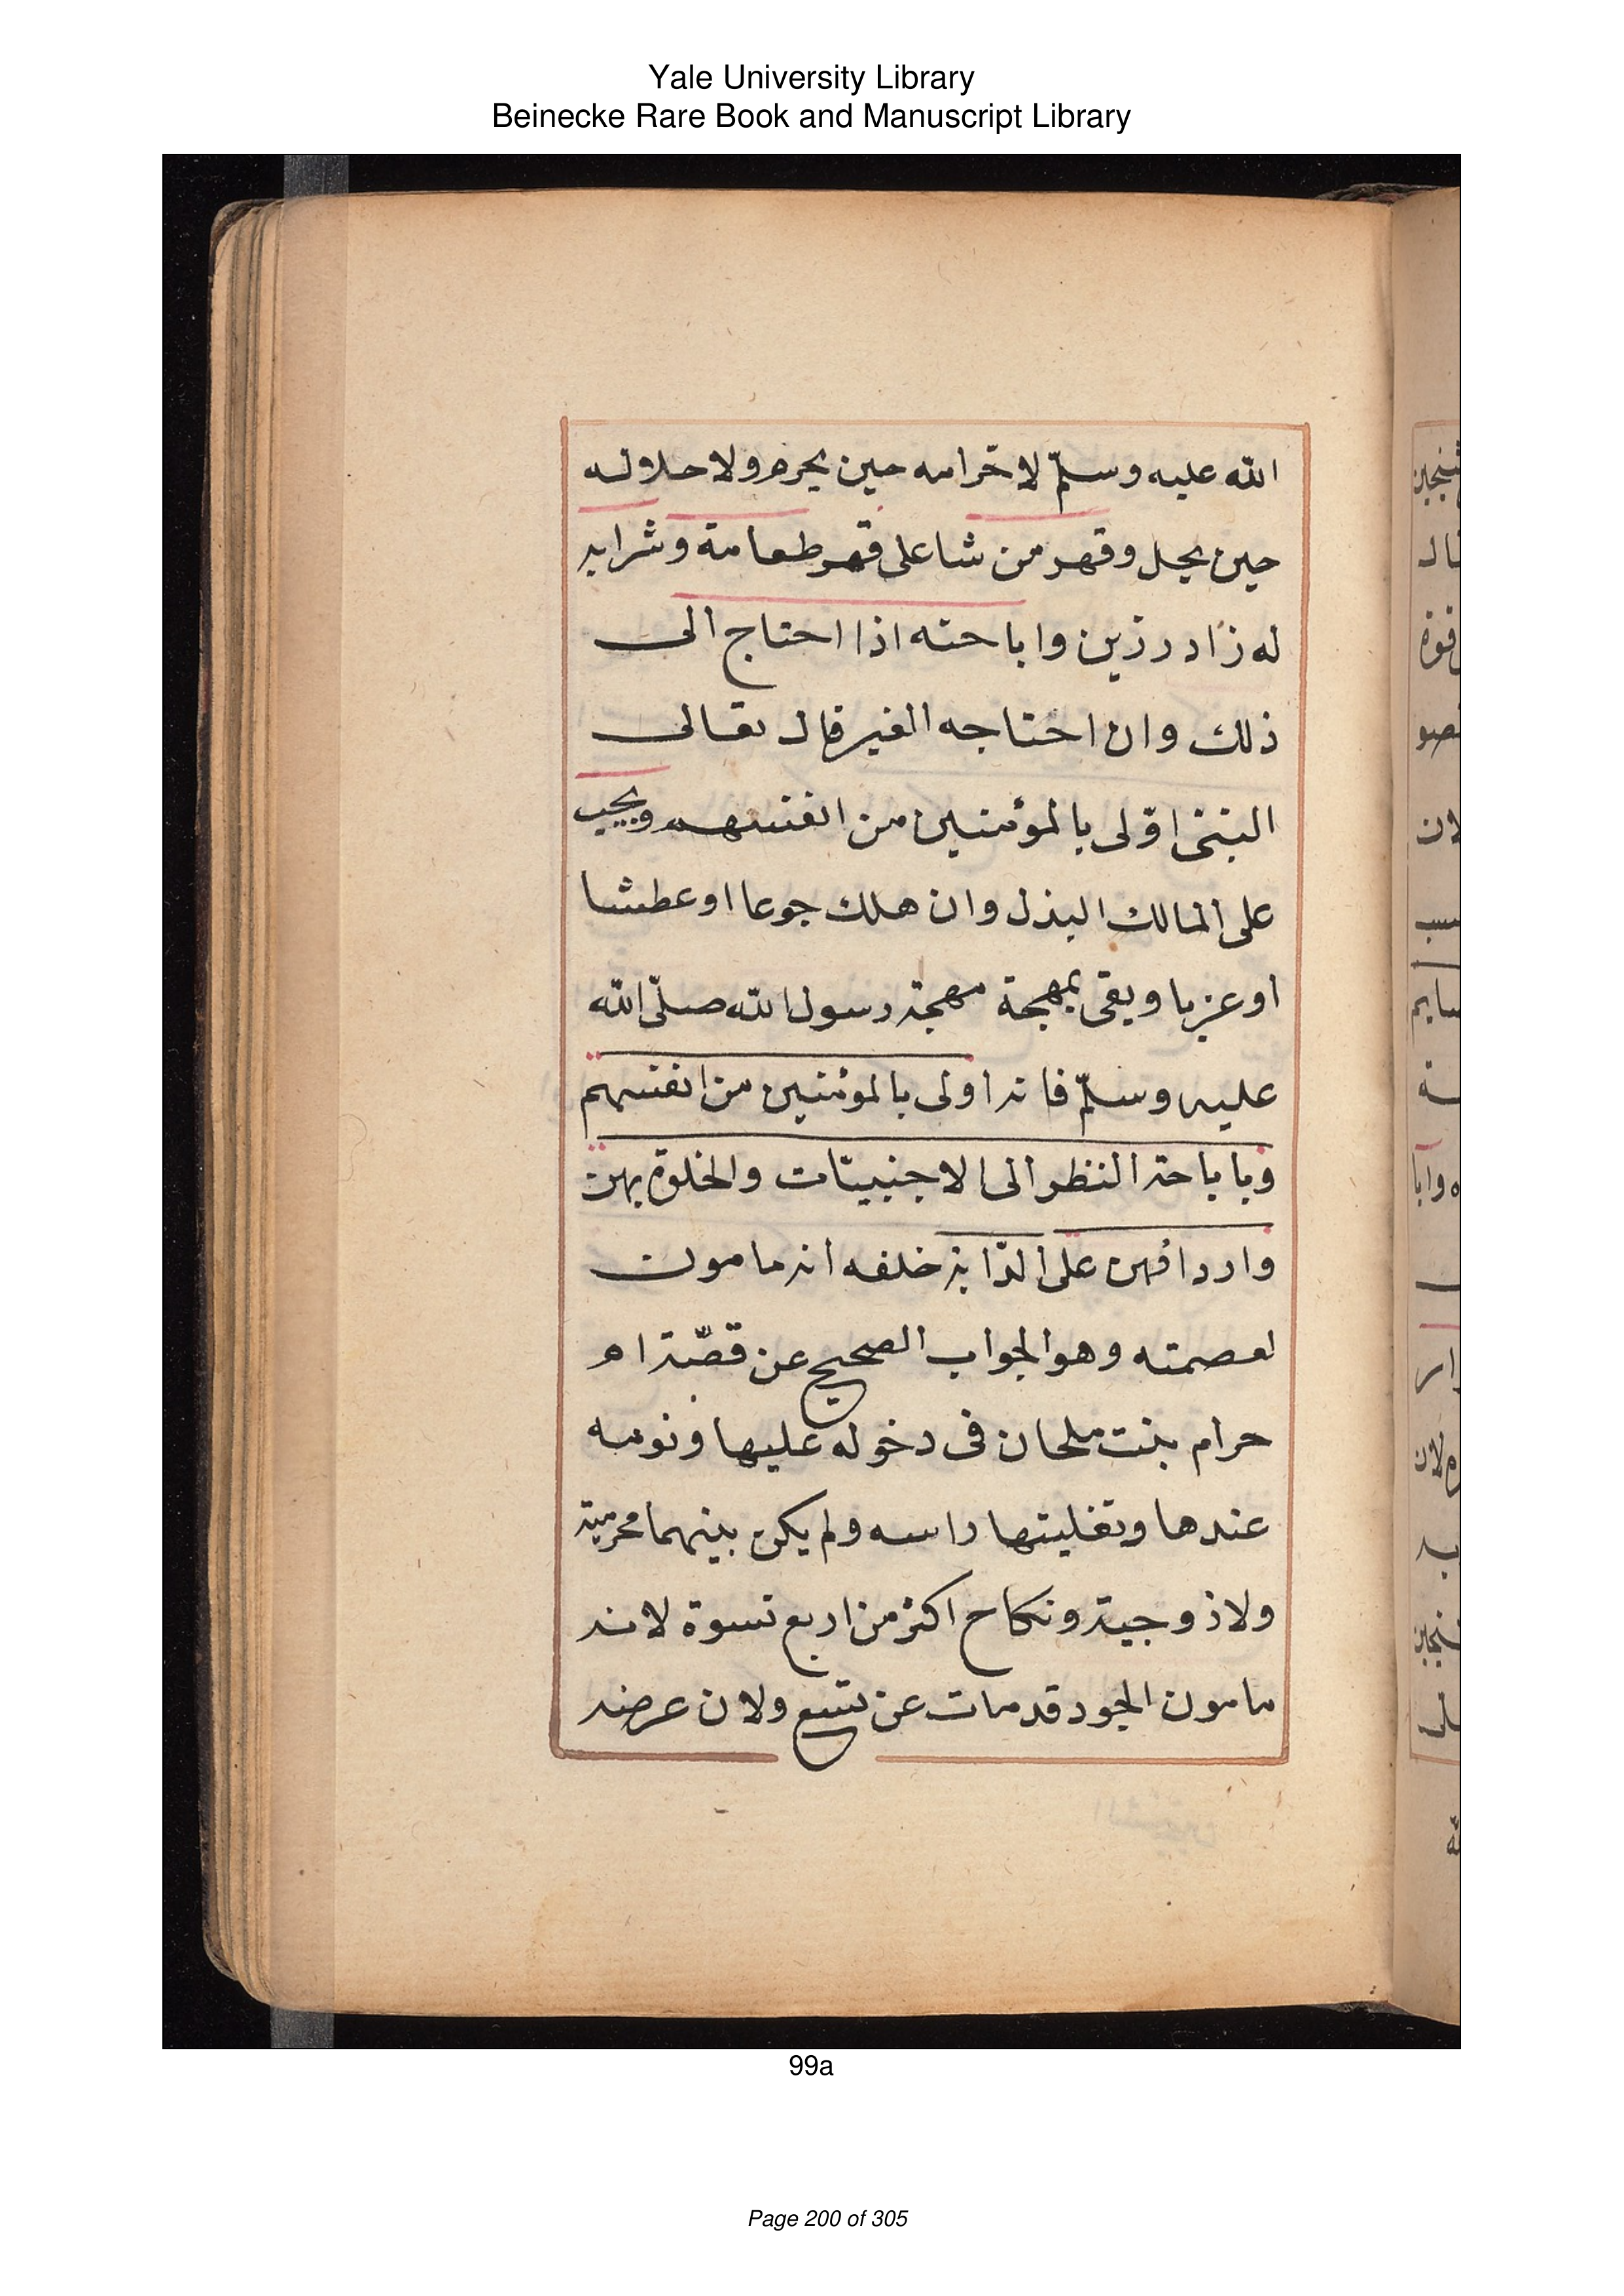 Yale University Library
Beinecke Rare Book and Manuscript Library
الله عليه وسلّم لاحرامه حين يحرم ولا حلاله
حين يحل وقهر من شا على قهر طعامة وشرابه
له زاد رزين واباحته اذا احتاج الى
ذلك وان احتاجه الغير قال تعالى
النبى اولى بالمؤمنين من انفسهم ويجب
على المالك البذل وان هلك جوعا او عطشا
او عزيا ويقى بمهجة مهجة رسول الله صلّى الله
عليه وسلّم فانه اولى بالمؤمنين من انفسهم
وباباحة النظر الى الاجنبيّات والخلوة بهن
واردافهن على الدّابة خلفه انه مامون
لعصمته وهو الجواب الصحيح عن قصّة ام
حرام بنت ملحان فى دخوله عليها ونومه
عندها وتفليتها راسه ولم يكن بينهما محرمية
ولازوجية ونكاح اكثر من اربع نسوة لانه
مامون الجود قد مات عن تسع ولان غرضه
99a
Page 200 of 305